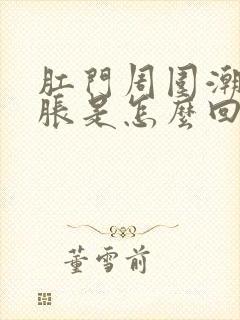 肛門周圍潮
脹是怎麼回
董雪前